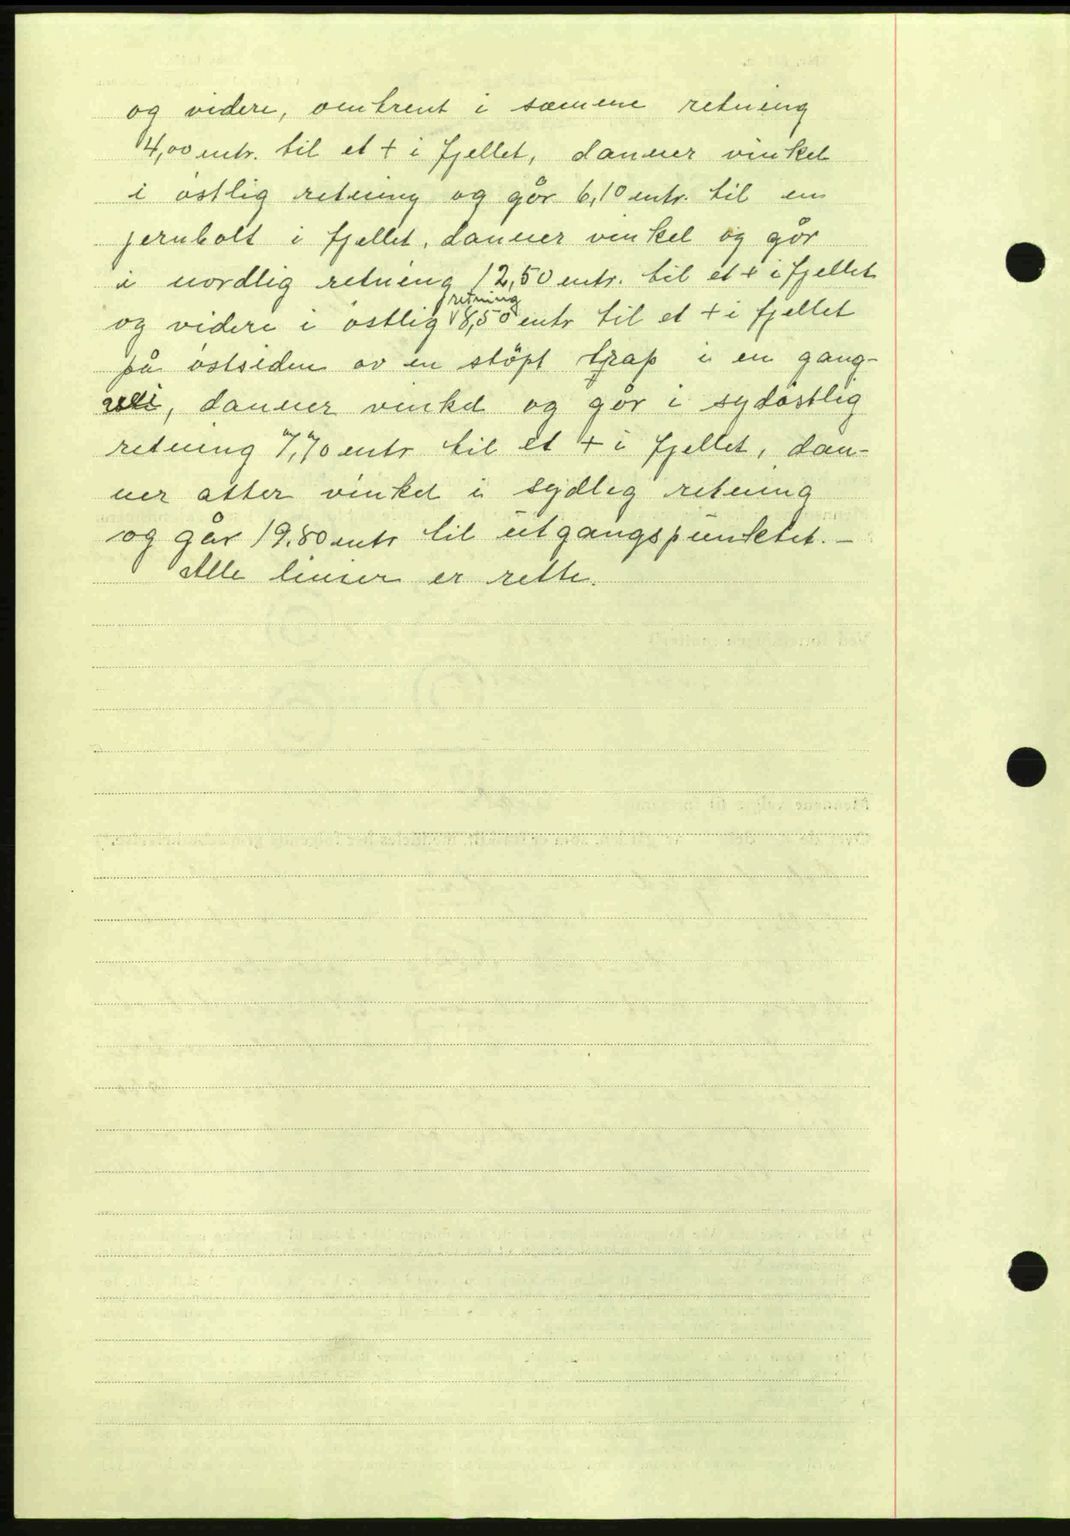 og videre, omtrent i samme retning
4,00 mtr. til et + i fjellet, danner vinkel
i östlig retning og går 6,10 mtr. til en
jernbolt i fjellet, danner vinkel og går
i nordlig retning 12,50 mtr. til et + i fjellet
og videre i östlig retning 8,50 mtr til et + i fjellet
på östsiden av en stöpt trap i en gang-
vei, danner vinkel og går i sydöstlig
retning 7,70 mtr til et + i fjellet, dan-
ner atter vinkel i sydlig retning
og går 19.80 mtr til utgangspunktet. –
Alle linier er rette.